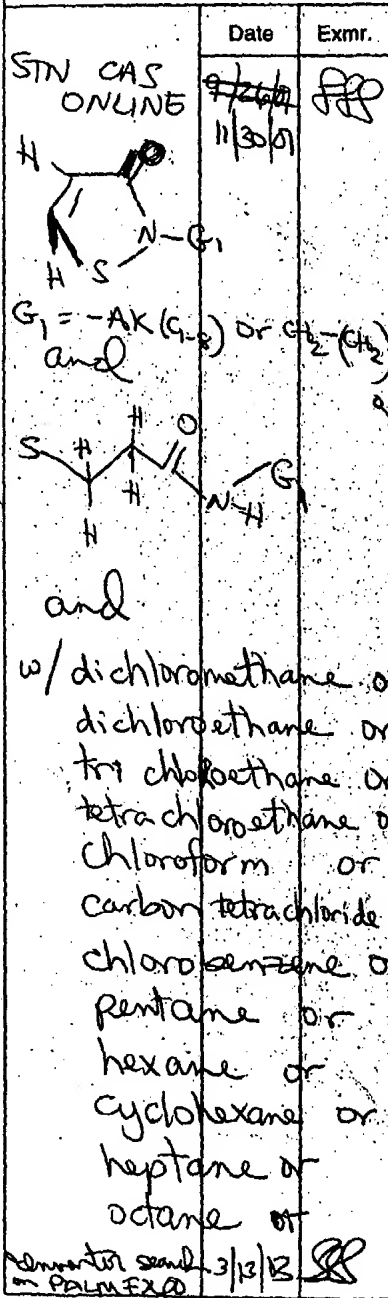 Date Exmr.
STN CAS
ONLINE
11/30/01
H
O
N-G1
H S
G1 = -AK(C1-8) or CH2-(CH2)
and
H H O
S G
H H N-H
and
w/ dichloromethane o
dichloroethane or
tri chloroethane or
tetrachloroethane o
chloroform or
carbon tetrachloride
chlorobenzene o
pentane or
hexane or
cyclohexane or
heptane or
octane or
search 3/13/
on PALM